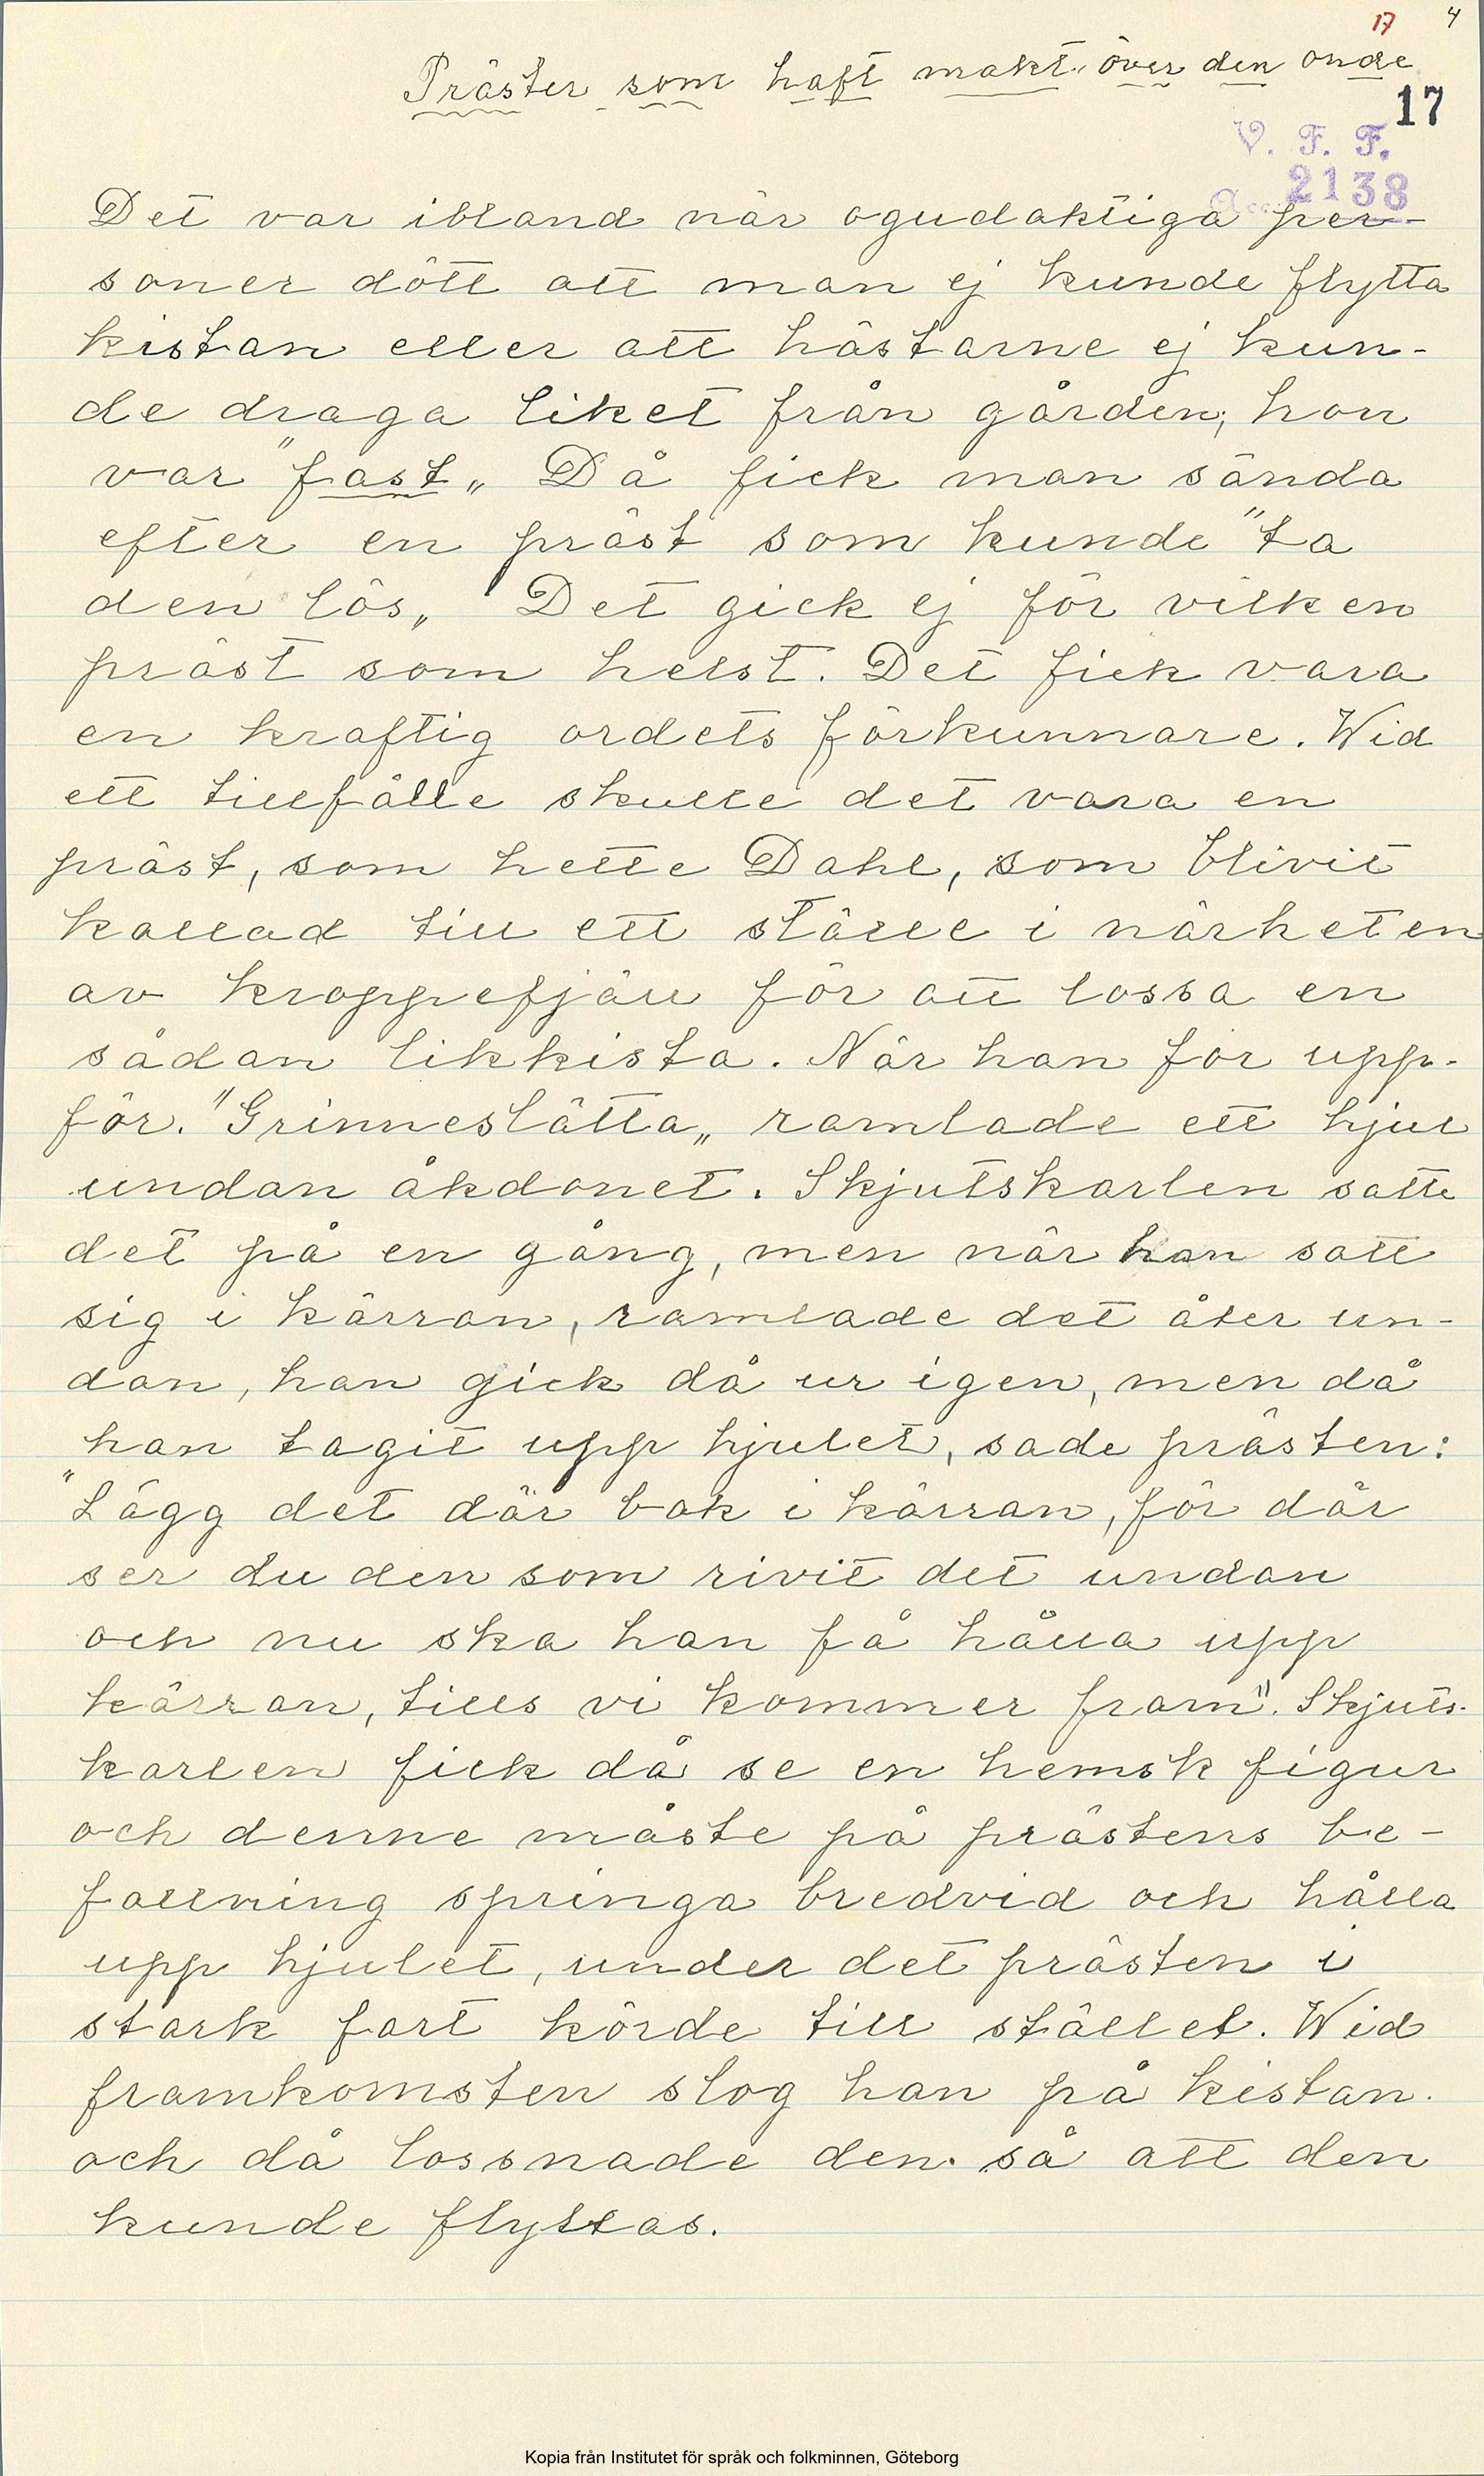 17 4
Präster som haft makt över den onde
17
V. F. F.
Acc. 2138
Det var ibland när ogudaktiga per-
soner dött att man ej kunde flytta
kistan eller att hästarne ej kun-
de draga liket från gården, hon
var "fast„ Då fick man sända
efter en präst som kunde "ta
den lös„ Det gick ej för vilken
präst som helst. Det fick vara
en kraftig ordets förkunnare. Wid
ett tillfälle skulle det vara en
präst, som hette Dahl, som blivit
kallad till ett ställe i närheten
av kroppefjäll för att lossa en
sådan likkista. När han for upp-
för. "Grinneslätta„ ramlade ett hjul
undan åkdonet. Skjutskarlen satte
det på en gång, men när han satt
sig i kärran, ramlade det åter un-
dan, han gick då ur igen, men då
han tagit upp hjulet, sade prästen:
"Lägg det där bak i kärran, för där
ser du den som rivit det undan
och nu ska han få hålla upp
kärran, tills vi kommer fram". Skjuts-
karlen fick då se en hemsk figur
och denne måste på prästens be-
fallning springa bredvid och hålla
upp hjulet, under det prästen i
stark fart körde till stället. Wid
framkomsten slog han på kistan.
och då lossnade den. så att den
kunde flyttas.
Kopia från Institutet för språk och folkminnen, Göteborg